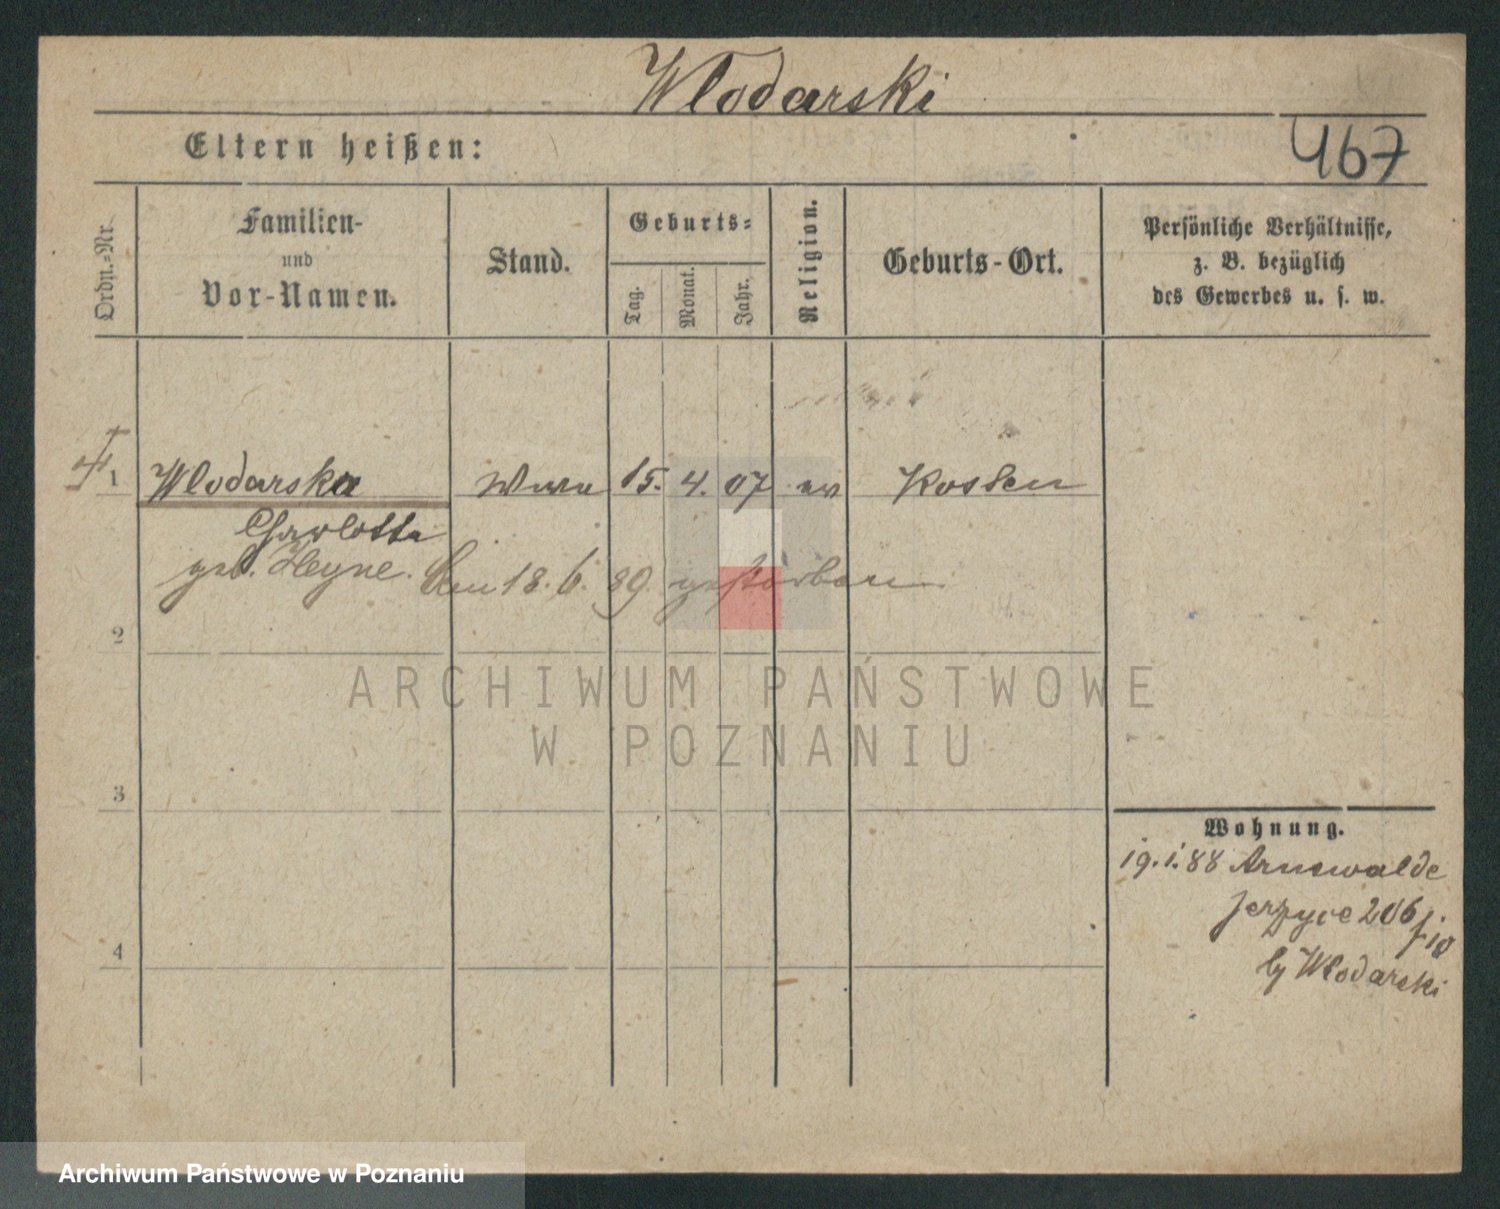 Wlodarski
467
Eltern heißen:
Ordn.-Nr.
Familien-
und
Vor-Namen.
Stand.
Geburts-
Tag.
Monat.
Jahr.
Religion.
Geburts-Ort.
Persönliche Verhältnisse,
z. B. bezüglich
des Gewerbes u. s. w.
1 Wlodarska Wwe 15. 4. 07 ev Kosten
Charlotte
geb. Heyne. den 18. 6. 89 gestorben
2
ARCHIWUM PAŃSTWOWE
W POZNANIU
3
Wohnung.
19.1.88 Arnswalde
Jerzyce 206
by Wlodarski
4
Archiwum Państwowe w Poznaniu